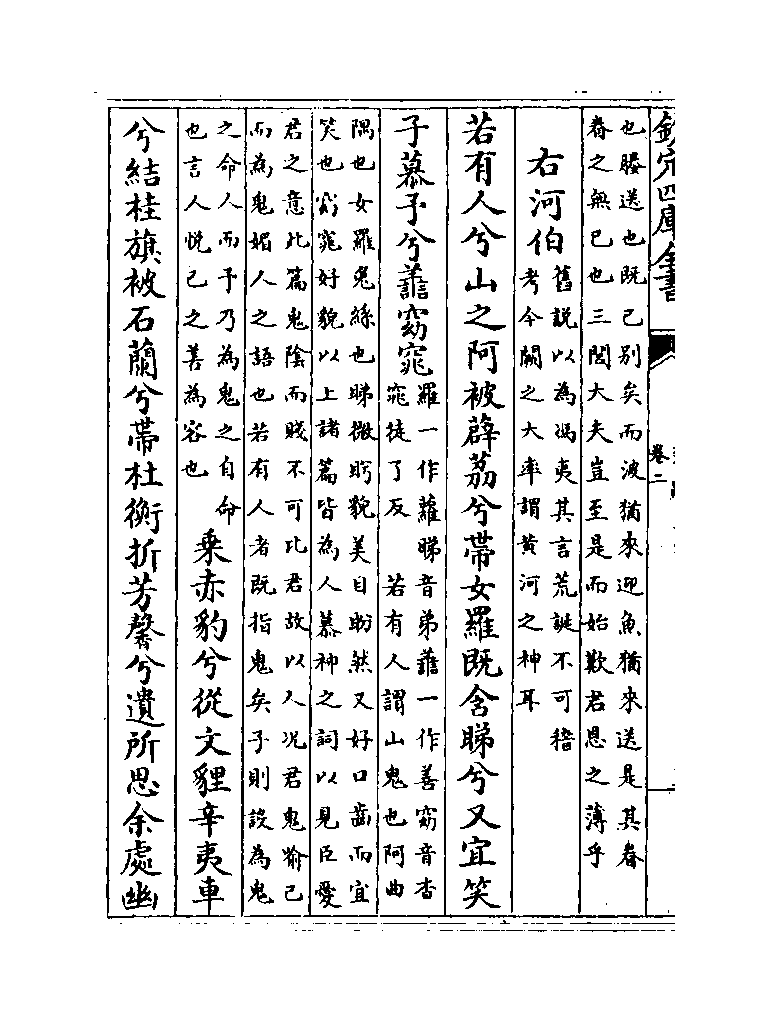 欽定四庫全書
卷二
也媵送也既已別矣而波猶來迎魚猶來送是其眷
眷之無已也三閭大夫豈至是而始歎君恩之薄乎
右河伯
舊說以為馮夷其言荒誕不可稽
考今闕之大率謂黃河之神耳
若有人兮山之阿被薜荔兮帶女羅既含睇兮又宜笑
子慕予兮譱窈窕
羅一作蘿睇音弟譱一作善窈音杳
窕徒了反　若有人謂山鬼也阿曲
隅也女羅兔絲也睇微眄貌美目盼然又好口齒而宜
笑也窈窕好貌以上諸篇皆為人慕神之詞以見臣愛
君之意此篇鬼陰而賤不可比君故以人况君鬼喻己
而為鬼媚人之語也若有人者既指鬼矣子則設為鬼
之命人而予乃為鬼之自命
也言人悅己之善為容也
乘赤豹兮從文貍辛夷車
兮結桂旗被石蘭兮帶杜衡折芳馨兮遺所思余處幽